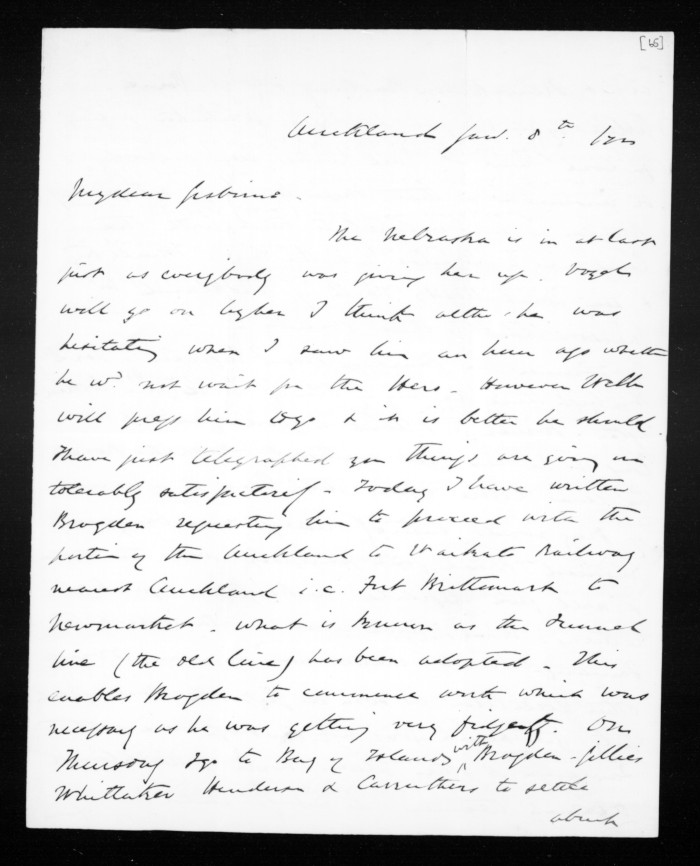 [65]
Auckland Jan. 8th
My dear Gisborne.
The Nebraska is in at last
just as everybody was giving her up. Vogel
will go on by her I think altho' he was
hesitating when I saw him an hour ago whether
he wd. not wait for the Hero. However Webb
will press him to go & it is better he should.
I have just telegraphed you things are going on
tolerably satisfactorily. Today I have written
Brogden requesting him to proceed with the
portion of the Auckland to Waikato Railway
nearest Auckland i.e. Fort Brittomart to
Newmarket. What is known as the Tunnel
line (the old line) has been adopted. This
enables Brogden to commence work which was
necessary as he was getting very fidgetty. On
Thursday I go to Bay of Islands with Brogden - Gillies
Whittaker Henderson & Carruthers to settle
about